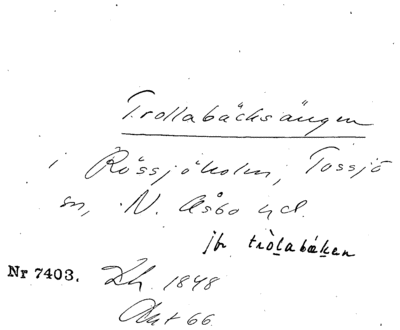 Trollabäcksängen
i Rössjöholm, Tossjö
sn, N. Åsbo hd.
jfr tròlabæken
Nr 7403. Lh. 1848
Akt 66